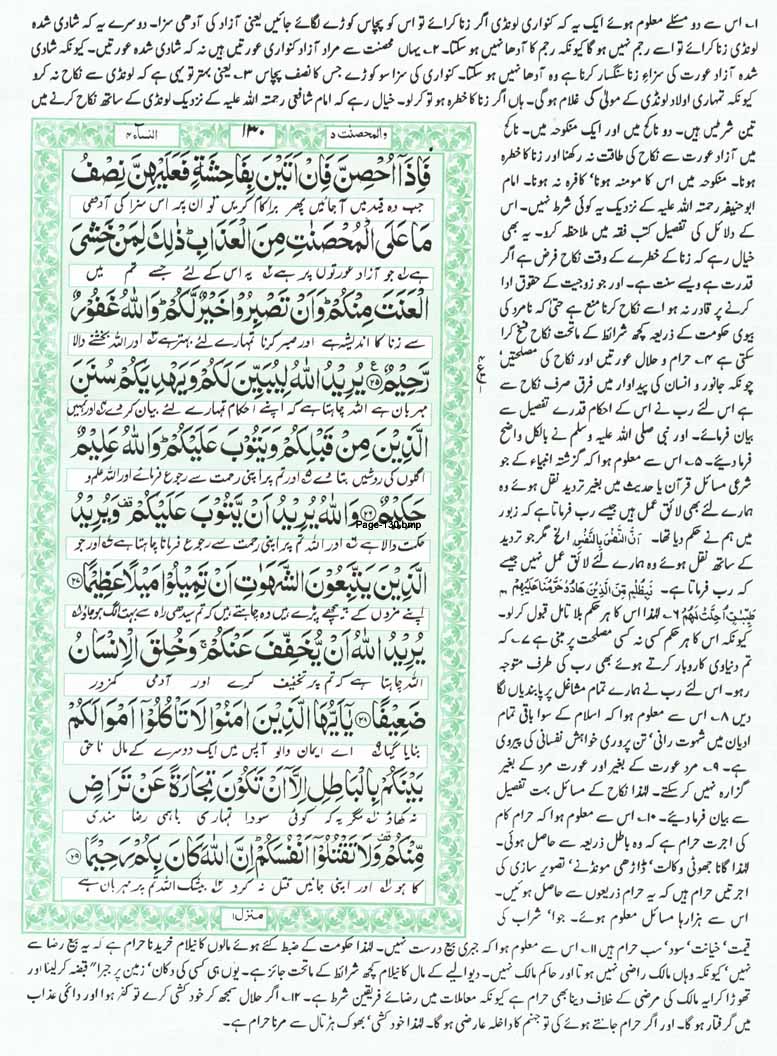 ۱۔ اس سے دو مسئلے معلوم ہوئے ایک یہ کہ کنواری لونڈی اگر زنا کرائے تو اس کو پچاس کوڑے لگائے جائیں یعنی آزاد کی آدھی سزا۔ دوسرے یہ کہ شادی شدہ
لونڈی زنا کرائے تو اسے رجم نہیں ہو گا کیونکہ رجم کا آدھا نہیں ہو سکتا۔ ۲۔ یہاں محصنت سے مراد آزاد کنواری عورتیں ہیں نہ کہ شادی شدہ عورتیں۔ کیونکہ شادی
شدہ آزاد عورت کی سزاء زنا سنگسار کرنا ہے وہ آدھا نہیں ہو سکتا۔ کنواری کی سزا سو کوڑے جس کا نصف پچاس ۳۔ یعنی بہتر تو یہی ہے کہ لونڈی سے نکاح نہ کرو
کیونکہ تمہاری اولاد لونڈی کے مولیٰ کی غلام ہوگی۔ ہاں اگر زنا کا خطرہ ہو تو کر لو۔ خیال رہے کہ امام شافعی رحمتہ اللہ علیہ کے نزدیک لونڈی کے ساتھ نکاح کرنے میں
تین شرطیں ہیں۔ دو ناکح میں اور ایک منکوحہ میں۔ ناکح
میں آزاد عورت سے نکاح کی طاقت نہ رکھنا اور زنا کا خطرہ
ہونا۔ منکوحہ میں اس کا مومنہ ہونا' کافرہ نہ ہونا۔ امام
ابوحنیفہ رحمتہ اللہ علیہ کے نزدیک یہ کوئی شرط نہیں۔ اس
کے دلائل کی تفصیل کتب فقہ میں ملاحظہ کرو۔ یہ بھی
خیال رہے کہ زنا کے خطرے کے وقت نکاح فرض ہے اگر
قدرت ہے ویسے سنت ہے۔ اور جو زوجیت کے حقوق ادا
کرنے پر قادر نہ ہو اسے نکاح کرنا منع ہے حتی کہ نامرد کی
بیوی حکومت کے ذریعہ کچھ شرائط کے ماتحت نکاح فسخ کرا
سکتی ہے ۴۔ حرام و حلال عورتیں اور نکاح کی مصلحتیں'
چونکہ جانور و انسان کی پیداوار میں فرق صرف نکاح سے
ہے اس لئے رب نے اس کے احکام قدرے تفصیل سے
بیان فرمائے۔ اور نبی صلی اللہ علیہ وسلم نے بالکل واضح
فرما دیئے۔ ۵۔ اس سے معلوم ہوا کہ گزشتہ انبیاء کے جو
شرعی مسائل قرآن یا حدیث میں بغیر تردید نقل ہوئے وہ
ہمارے لئے بھی لائق عمل ہیں جیسے رب فرماتا ہے کہ زبور
میں ہم نے حکم دیا تھا۔ اَنَّ النَّفْسَ بِالنَّفْسِ الخ مگر جو تردید
کے ساتھ نقل ہوئے وہ ہمارے لئے لائق عمل نہیں جیسے
کہ رب فرماتا ہے۔ فَبِظُلْمٍ مِّنَ الَّذِیْنَ هَادُوْا حَرَّمْنَا عَلَیْهِمْ
طَیِّبٰتٍ اُحِلَّتْ لَهُمْ ۶۔ لہٰذا اس کا ہر حکم بلا تامل قبول کر لو۔
کیونکہ اس کا ہر حکم کسی نہ کسی مصلحت پر مبنی ہے ۷۔ کہ
تم دنیاوی کاروبار کرتے ہوئے بھی رب کی طرف متوجہ
رہو۔ اس لئے رب نے ہمارے تمام مشاغل پر پابندیاں لگا
دیں ۸۔ اس سے معلوم ہوا کہ اسلام کے سوا باقی تمام
ادیان میں شہوت رانی' تن پروری خواہش نفسانی کی پیروی
ہے۔ ۹۔ مرد عورت کے بغیر اور عورت مرد کے بغیر
گزارہ نہیں کر سکتے۔ لہٰذا نکاح کے مسائل بہت تفصیل
سے بیان فرما دیئے۔ ۱۰۔ اس سے معلوم ہوا کہ حرام کام
کی اجرت حرام ہے کہ وہ باطل ذریعہ سے حاصل ہوئی۔
لہٰذا گانا جھوٹی وکالت' ڈاڑھی مونڈنے' تصویر سازی کی
اجرتیں حرام ہیں کہ یہ حرام ذریعوں سے حاصل ہوئیں۔
اس سے ہزارہا مسائل معلوم ہوئے۔ جوا' شراب کی
والمحصنت ۵ ۱۳۰ النساء ۴
فَاِذَاۤ اُحْصِنَّ فَاِنْ اَتَیْنَ بِفَاحِشَةٍ فَعَلَیْهِنَّ نِصْفُ
جب وہ قید میں آجائیں پھر برا کام کریں تو ان پر اس سزا کی آدھی
مَا عَلَی الْمُحْصَنٰتِ مِنَ الْعَذَابِ ؕ ذٰلِكَ لِمَنْ خَشِیَ
ہے جو آزاد عورتوں پر ہے یہ اس کے لئے جسے تم میں
الْعَنَتَ مِنْكُمْ ؕ وَ اَنْ تَصْبِرُوْا خَیْرٌ لَّكُمْ ؕ وَ اللّٰهُ غَفُوْرٌ
سے زنا کا اندیشہ ہے اور صبر کرنا تمہارے لئے بہتر ہے اور اللہ بخشنے والا
رَّحِیْمٌ ۠ ۲۵ یُرِیْدُ اللّٰهُ لِیُبَیِّنَ لَكُمْ وَ یَهْدِیَكُمْ سُنَنَ
مہربان ہے اللہ چاہتا ہے کہ اپنے احکام تمہارے لئے بیان کر دے اور تمہیں
الَّذِیْنَ مِنْ قَبْلِكُمْ وَ یَتُوْبَ عَلَیْكُمْ ؕ وَ اللّٰهُ عَلِیْمٌ
اگلوں کی روشیں بتا دے اور تم پر اپنی رحمت سے رجوع فرمائے اور اللہ علم و
حَكِیْمٌ ۲۶ وَ اللّٰهُ یُرِیْدُ اَنْ یَّتُوْبَ عَلَیْكُمْ ۫ وَ یُرِیْدُ
Page-130.bmp
حکمت والا ہے اور اللہ تم پر اپنی رحمت سے رجوع فرمانا چاہتا ہے اور جو
الَّذِیْنَ یَتَّبِعُوْنَ الشَّهَوٰتِ اَنْ تَمِیْلُوْا مَیْلًا عَظِیْمًا ۲۷
اپنے مزوں کے پیچھے پڑے ہیں وہ چاہتے ہیں کہ تم سیدھی راہ سے بہت الگ ہو جاؤ
یُرِیْدُ اللّٰهُ اَنْ یُّخَفِّفَ عَنْكُمْ ۚ وَ خُلِقَ الْاِنْسَانُ
اللہ چاہتا ہے کہ تم پر تخفیف کرے اور آدمی کمزور
ضَعِیْفًا ۲۸ یٰۤاَیُّهَا الَّذِیْنَ اٰمَنُوْا لَا تَاْكُلُوْۤا اَمْوَالَكُمْ
بنایا گیا اے ایمان والو آپس میں ایک دوسرے کے مال ناحق
بَیْنَكُمْ بِالْبَاطِلِ اِلَّاۤ اَنْ تَكُوْنَ تِجَارَةً عَنْ تَرَاضٍ
نہ کھاؤ مگر یہ کہ کوئی سودا تمہاری باہمی رضا مندی
مِّنْكُمْ ۫ وَ لَا تَقْتُلُوْۤا اَنْفُسَكُمْ ؕ اِنَّ اللّٰهَ كَانَ بِكُمْ رَحِیْمًا ۲۹
کا ہو اور اپنی جانیں قتل نہ کرو بیشک اللہ تم پر مہربان ہے
منزل ۱
قیمت' خیانت' سود' سب حرام ہیں ۱۱۔ اس سے معلوم ہوا کہ جبری بیع درست نہیں۔ لہٰذا حکومت کے ضبط کئے ہوئے مالوں کا نیلام خریدنا حرام ہے کہ یہ بیع رضا سے
نہیں' کیونکہ وہاں مالک راضی نہیں ہوتا اور حاکم مالک نہیں۔ دیوالیے کے مال کا نیلام کچھ شرائط کے ماتحت جائز ہے۔ یوں ہی کسی کی دکان' زمین پر جبراً" قبضہ کر لینا اور
تھوڑا کرایہ مالک کی مرضی کے خلاف دینا بھی حرام ہے کیونکہ معاملات میں رضائے فریقین شرط ہے۔ ۱۲۔ اگر حلال سمجھ کر خود کشی کرے تو کفر ہوا اور دائمی عذاب
میں گرفتار ہو گا۔ اور اگر حرام جانتے ہوئے کی تو جہنم کا داخلہ عارضی ہو گا۔ لہٰذا خود کشی' بھوک ہڑتال سے مرنا حرام ہے۔